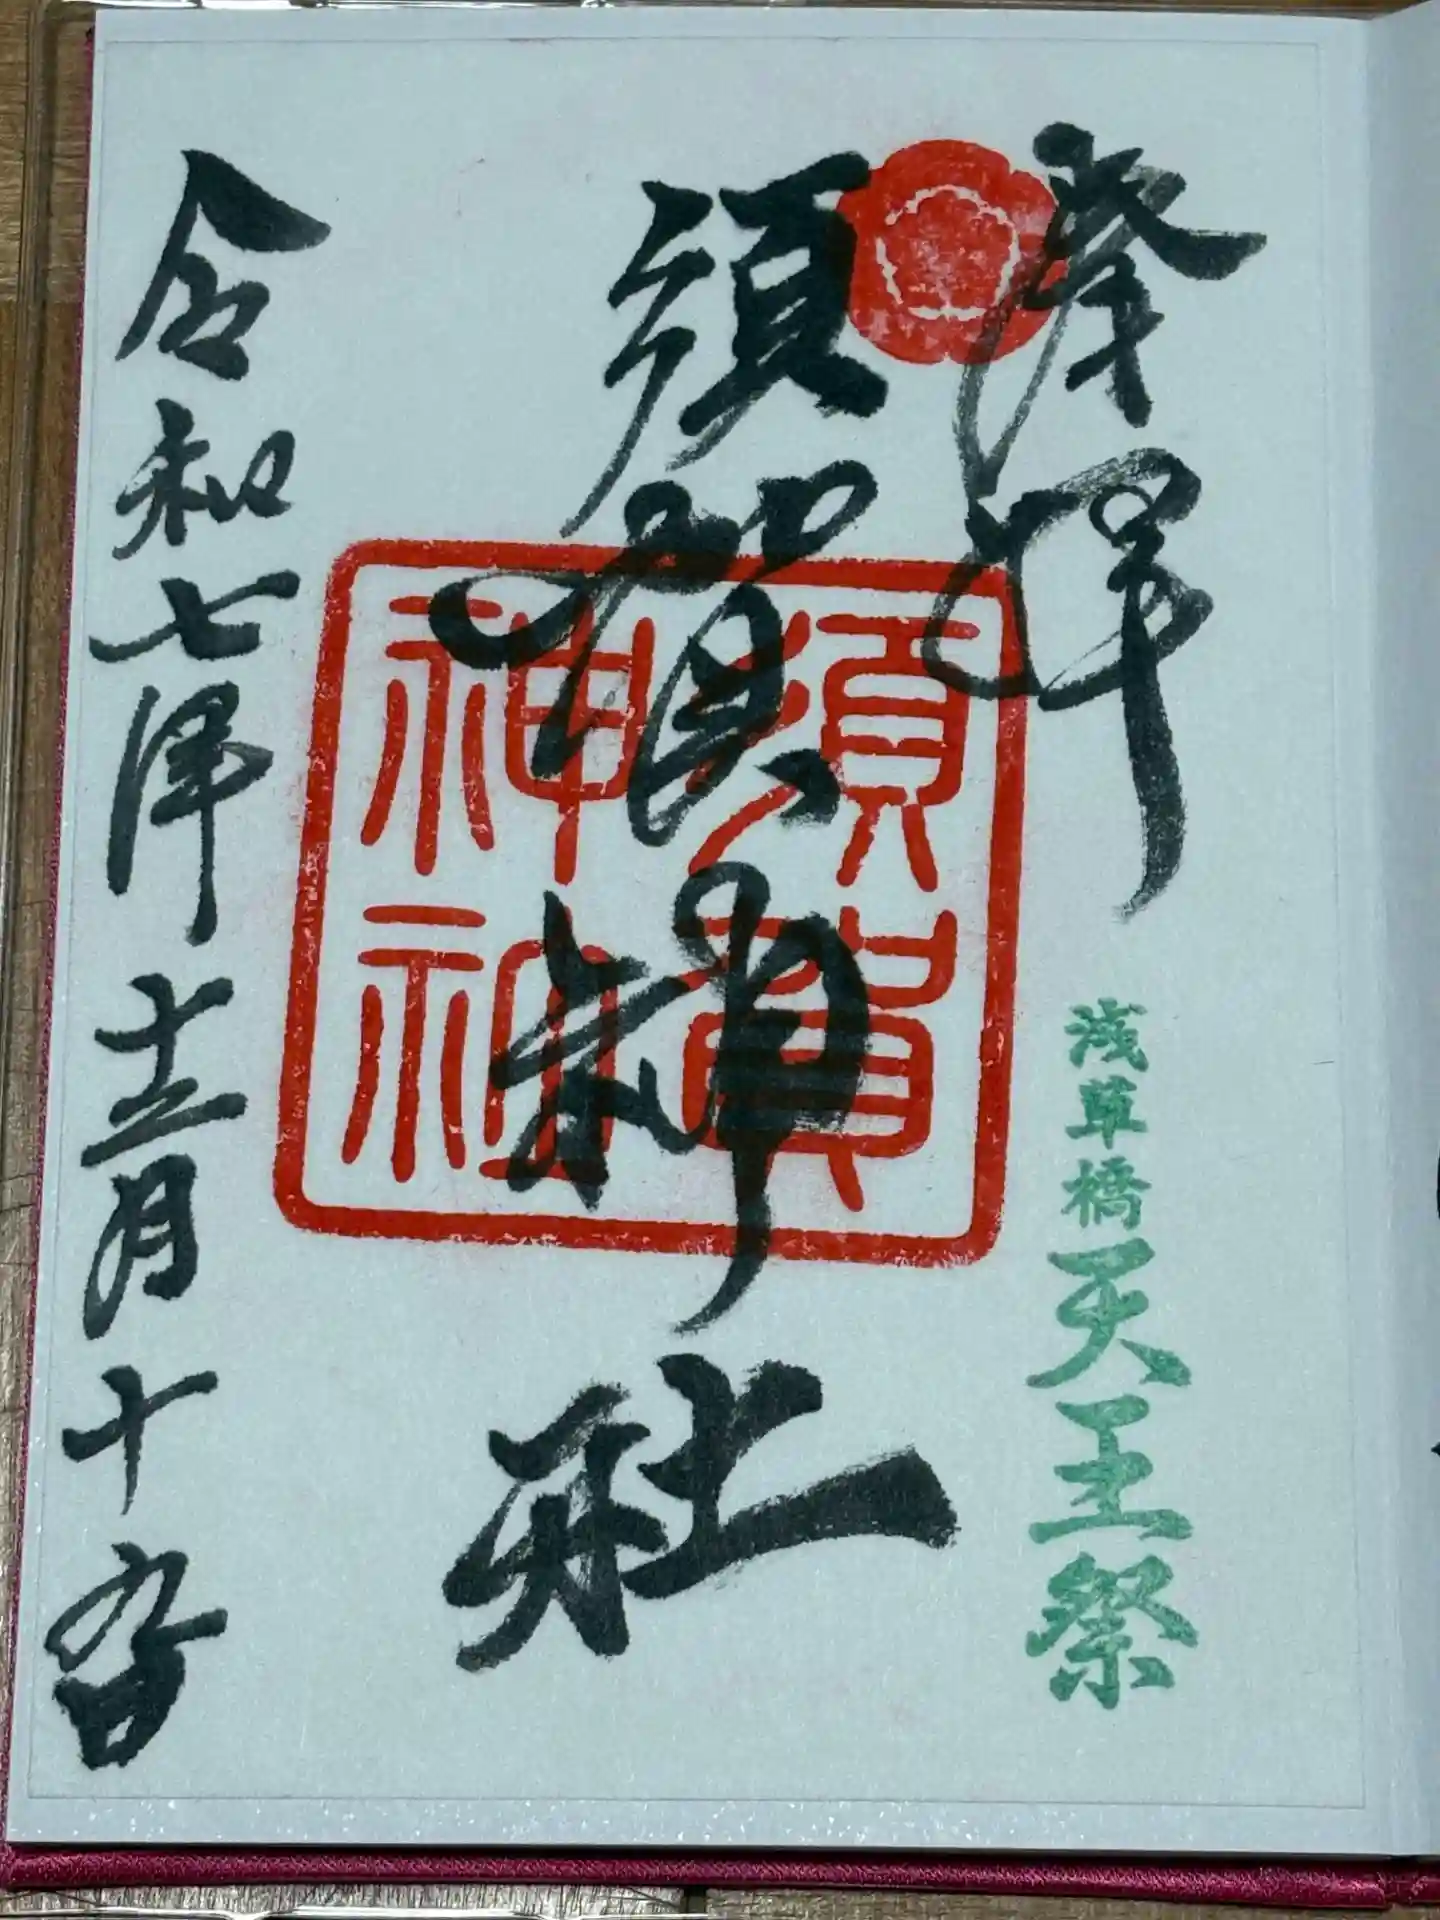 奉拝
浅草橋天王祭
須賀神社
須賀
神社
令和七年十二月十九日